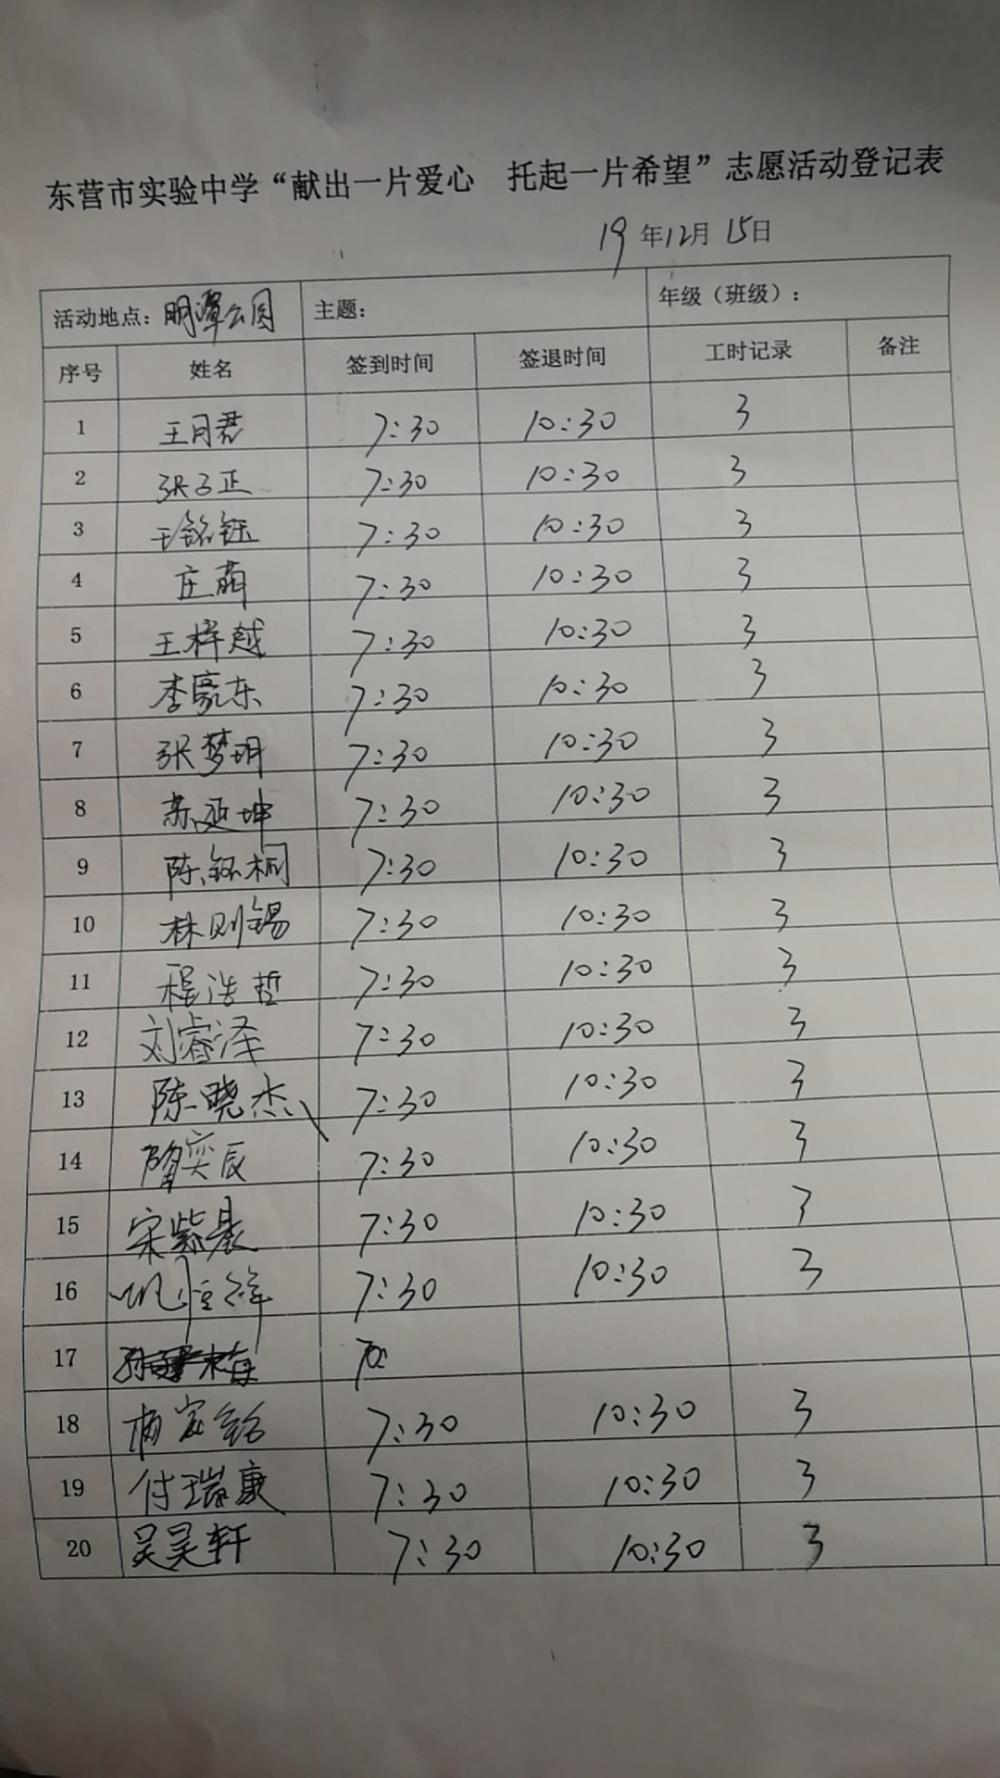 东营市实验中学“献出一片爱心 托起一片希望”志愿活动登记表
19年12月15日
活动地点：明潭公园 主题： 年级（班级）：
序号 姓名 签到时间 签退时间 工时记录 备注
1 王月君 7:30 10:30 3
2 张子正 7:30 10:30 3
3 王铭钰 7:30 10:30 3
4 庄萌 7:30 10:30 3
5 王梓越 7:30 10:30 3
6 李豪东 7:30 10:30 3
7 张梦玥 7:30 10:30 3
8 苏延坤 7:30 10:30 3
9 陈钰桐 7:30 10:30 3
10 林则锡 7:30 10:30 3
11 程浩哲 7:30 10:30 3
12 刘睿泽 7:30 10:30 3
13 陈晓杰 7:30 10:30 3
14 奕辰 7:30 10:30 3
15 宋紫晨 7:30 10:30 3
16 7:30 10:30 3
17
18 7:30 10:30 3
19 付瑞康 7:30 10:30 3
20 吴昊轩 7:30 10:30 3